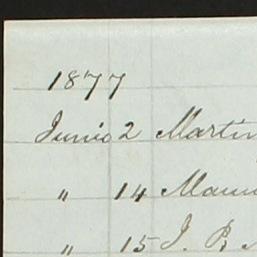 1877
Junio 2 Martin
" 14
" 15 J. R.